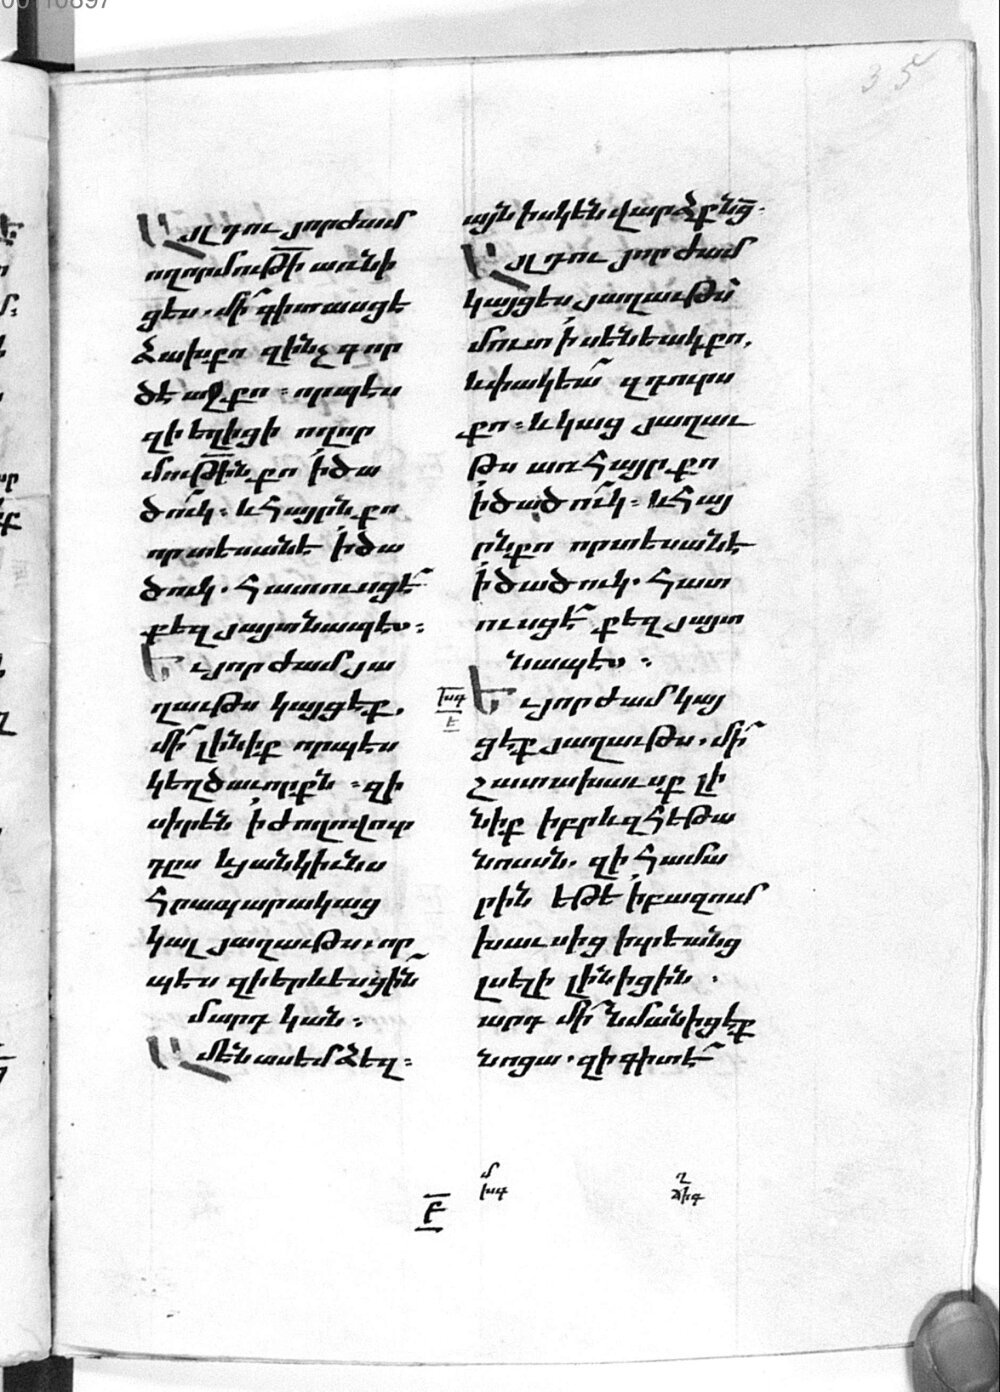 35
Այլ դու յորժամ
ողորմութի առնի
ցես. մի՛ գիտասցե
ձախ քո զինչ գոր
ծէ աջ քո։ որպէս
զի եղիցի ողոր
մութին քո ի ծա
ծուկ։ և հայրն քո
որ տեսանէ ի ծա
ծուկ. հատուսցէ՛
քեզ յայտնապէս։
Եւ յորժամ յա
ղաւթս կայցէք.
մի՛ լինիք որպէս
կեղծաւորքն։ զի
սիրեն ի ժողովուր
դըս և յանկիւնս
հրապարակաց
կալ յաղաւթս. որ
պէս զի երևեսցի՛ն
մարդկան։
Ամէն ասեմ ձեզ։
այն իսկ են վարձք նց.
Այլ դու յորժամ
կայցես յաղաւթս
մուտ ի սենեակ քո.
և փակեա՛ զդուրս
քո։ և կաց յաղաւ
թս առ հայր քո
ի ծածուկ։ և հայ
րն քո որ տեսանէ
ի ծածուկ. հատ
ուսցէ՛ քեզ յայտ
նապէս։
Եւ յորժամ կայ
ցէք յաղաւթս. մի՛
շատախաւսք լի
նիք իբրև զհեթա
նոսսն. զի համա
րին եթէ ի բազում
խաւսից իւրեանց
լսելի լինիցին.
արդ մի՛ նմանիցէք
նոցա. զի գիտէ՛
խգ
է
ե
մ
խգ
ղ